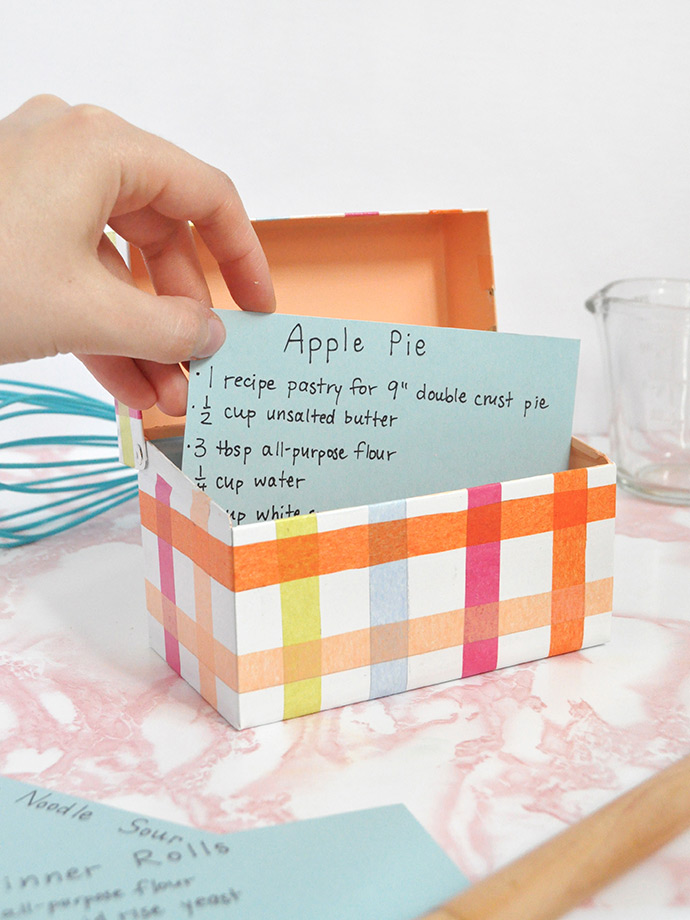 Apple Pie
· 1 recipe pastry for 9" double crust pie
· ½ cup unsalted butter
· 3 tbsp all-purpose flour
¼ cup water
cup white
Noodle Soup
inner Rolls
all-purpose flour
rise yeast